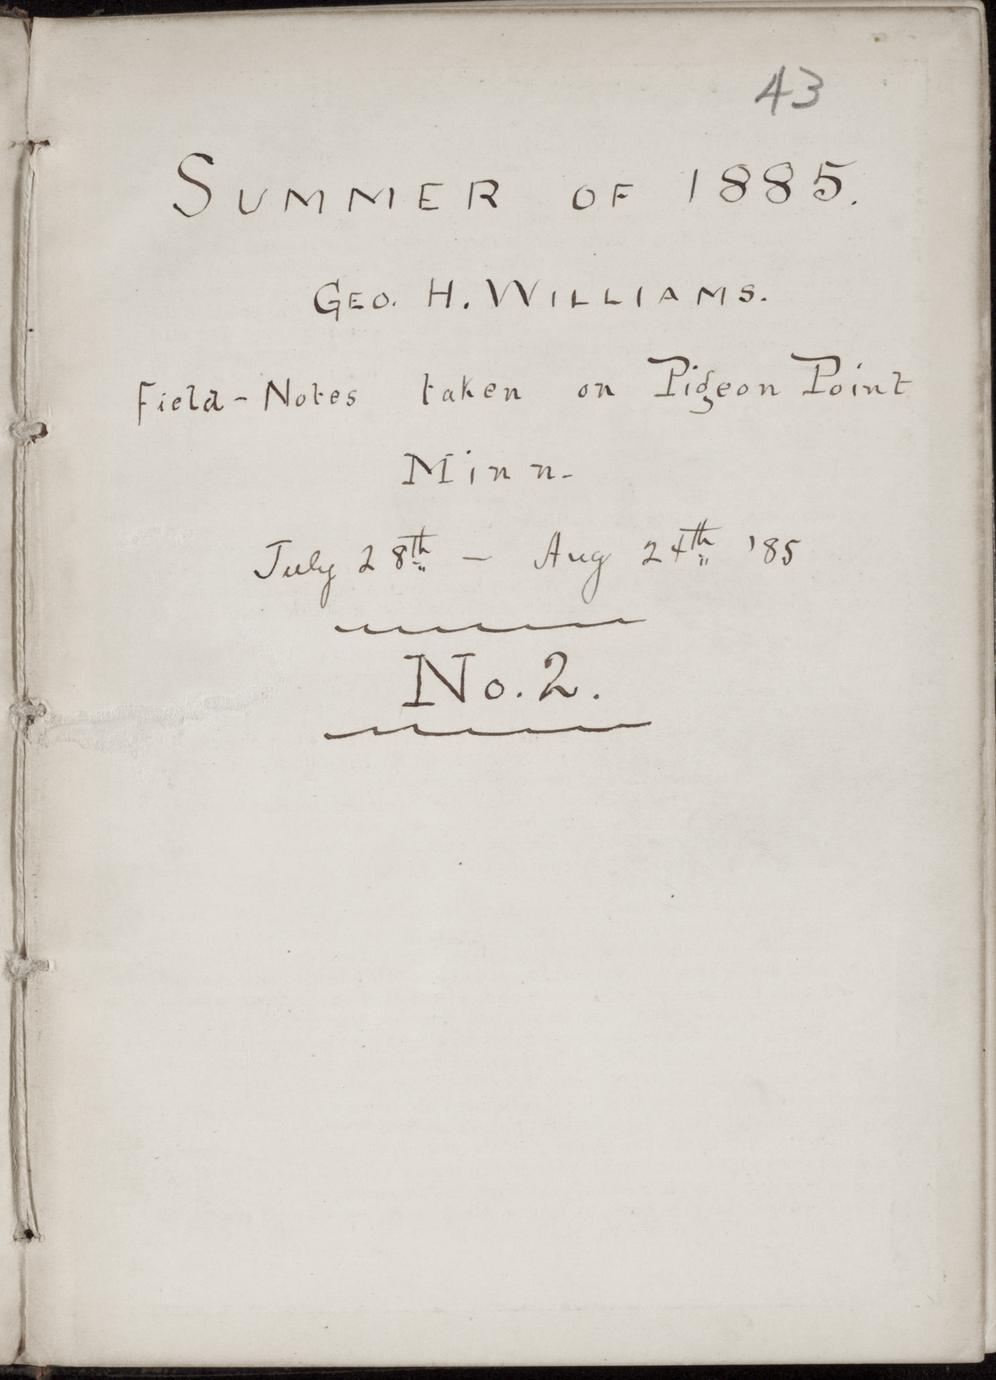 43
SUMMER OF 1885.
GEO. H. WILLIAMS.
Field-Notes taken on Pigeon Point
Minn.
July 28th — Aug 24th '85
No. 2.